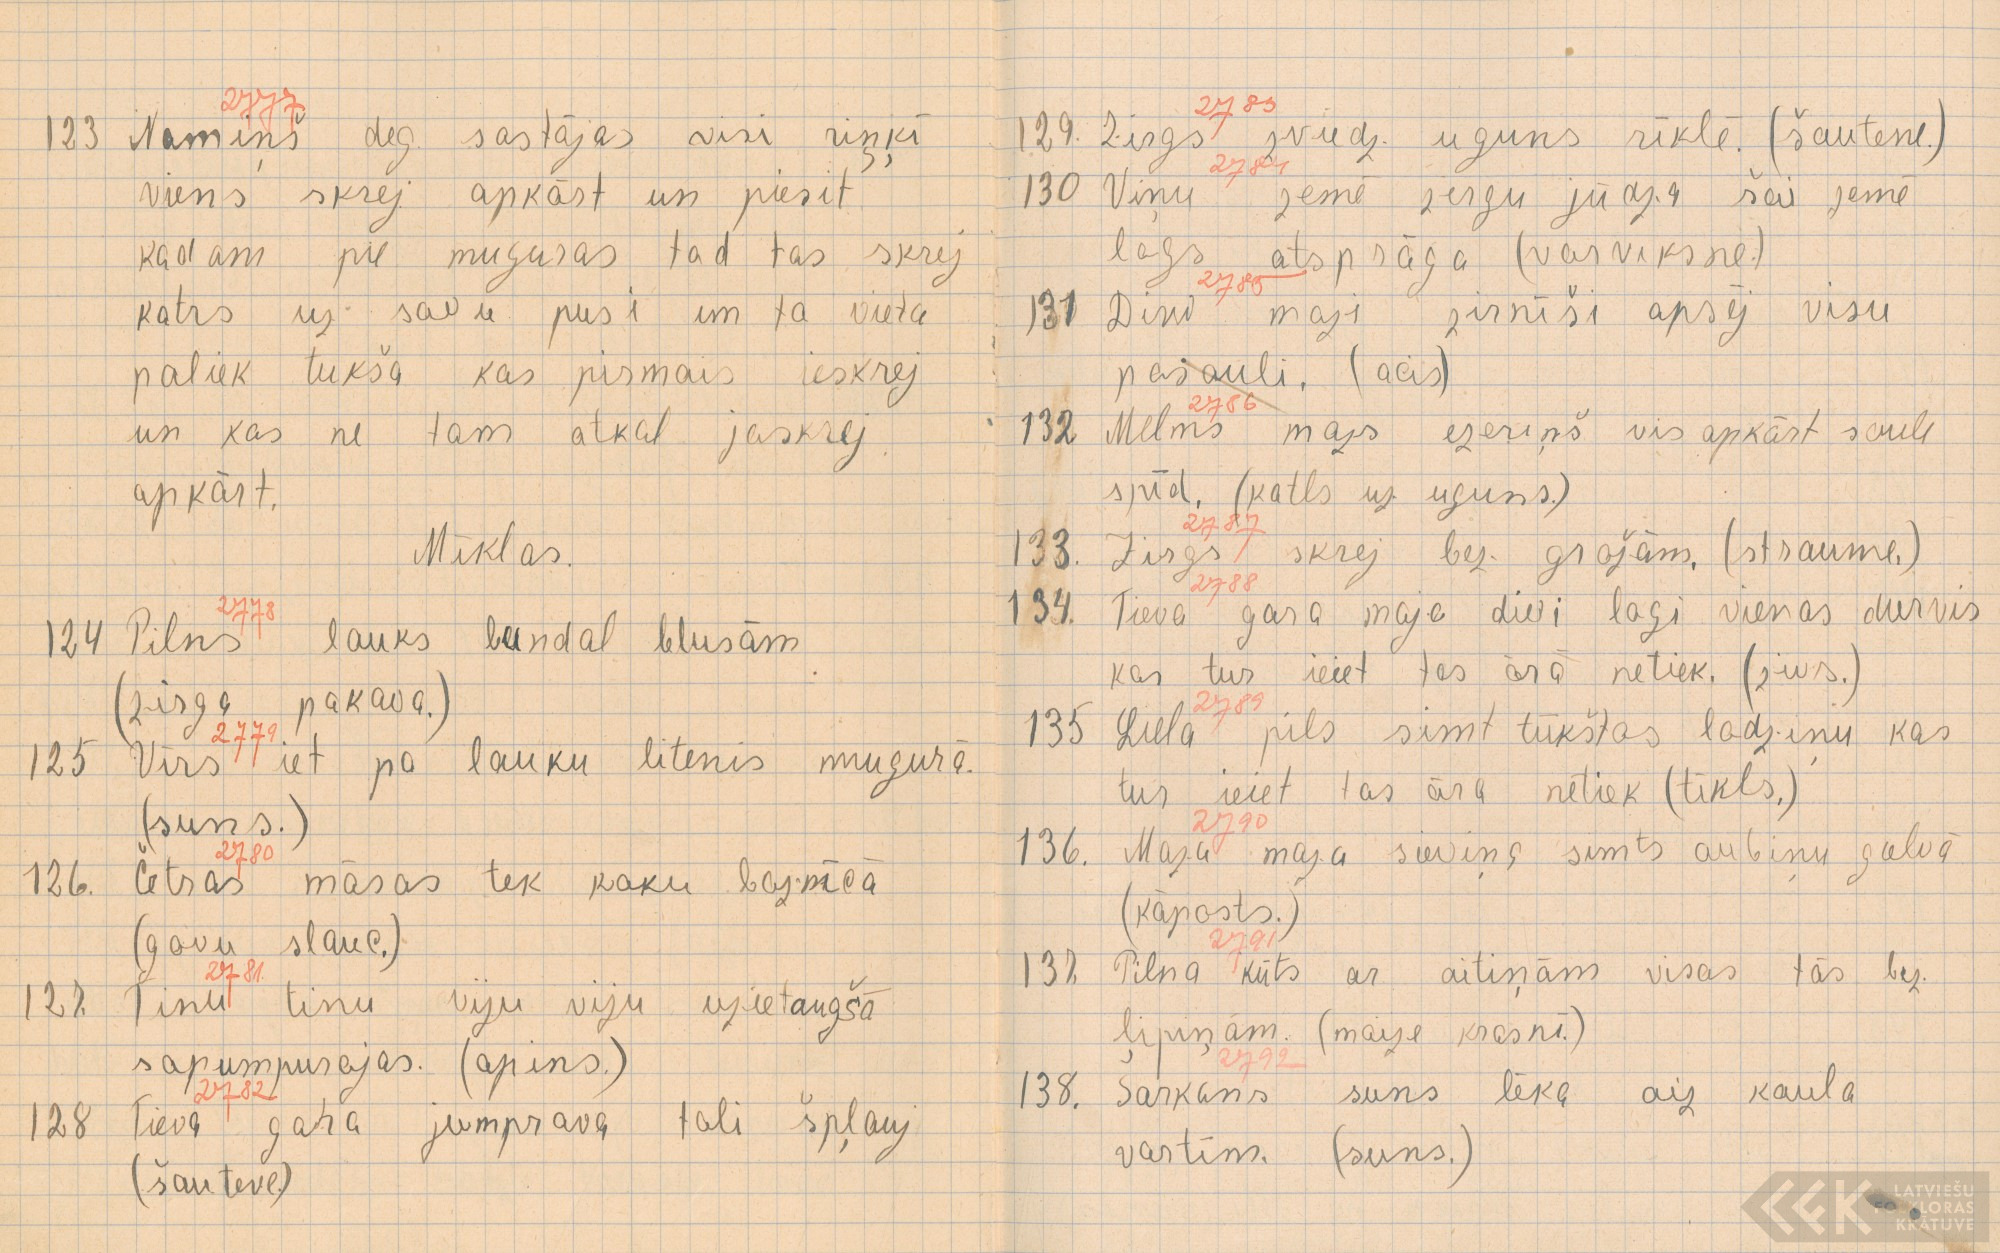 2777
123 Namiņš deg. sastājas visi riņķī
viens skrej apkārt un piesit
kadam pie muguras tad tas skrej
katrs uz savu pusi un ta vieta
paliek tukša kas pirmais ieskrej
un kas ne tam atkal jaskrej
apkārt.
Mīklas.
2778
124 Pilns lauks bandal blusām
(zirga pakava.)
2779
125 Vīrs iet pa lauku litenis mugurā.
(suns.)
2780
126. Četras māsas tek kaku baznīcā
(govu slauc.)
2781.
127. Tinu tinu viju viju uzietaugšā
sapumpurajas. (apins.)
2782
128 Tieva gara jumprava tali špļauj
(šauteve)
2783
129. Zirgs zviedz. uguns rīklē. (šautene.)
2784
130 Viņu zemē zergu jūdza šai zemē
logs atsprāga (varviksne.)
2785
131 Divi mazi zirnīši apsēj visu
pasauli. (acis)
2786
132 Melns mazs ezeriņš vis apkārt saule
spīd. (katls uz uguns.)
2787
133. Zirgs skrej bez grožām. (straume.)
2788
134. Tieva gara maja divi logi vienas durvis
kas tur ieiet tas ārā netiek. (zivs.)
2789
135 Liela pils simt tūkštos lodziņu kas
tur ieiet tas āra netiek (tīkls.)
2790
136. Maza maza sieviņa simts aubiņu galvā
(kāposts.)
2791
137. Pilna kūts ar aitiņām visas tās bez.
ļipiņām. (maize krasnī.)
2792
138. Sarkans suns lēka aiz kaula
vartīm. (suns.)
LATVIEŠU
FOLKLORAS
KRĀTUVE